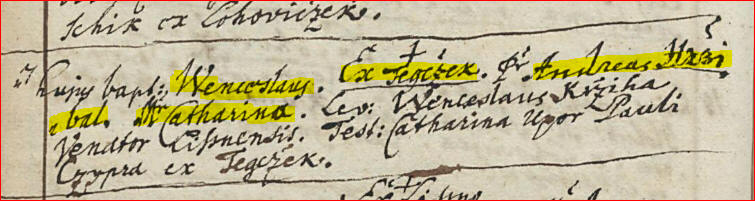 Schik ex Lohoviczek.
hujus bapt: Wenceslaus. Ex Tegczek. Pr Andreas Hrzi
bal. Mr Catharina. Lev: Wenceslaus Krziha
Venator Lisnensis. Test: Catharina Uxor Pauli
Czypra ex Tegczek.